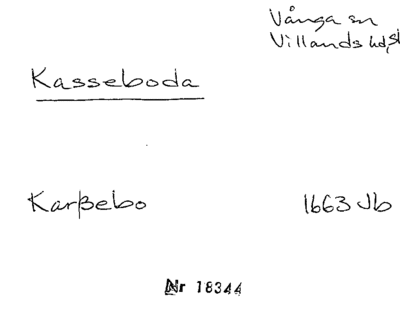 Vånga sn
Villands hd,
Kasseboda
Karßebo 1663 Jb
Nr 18344